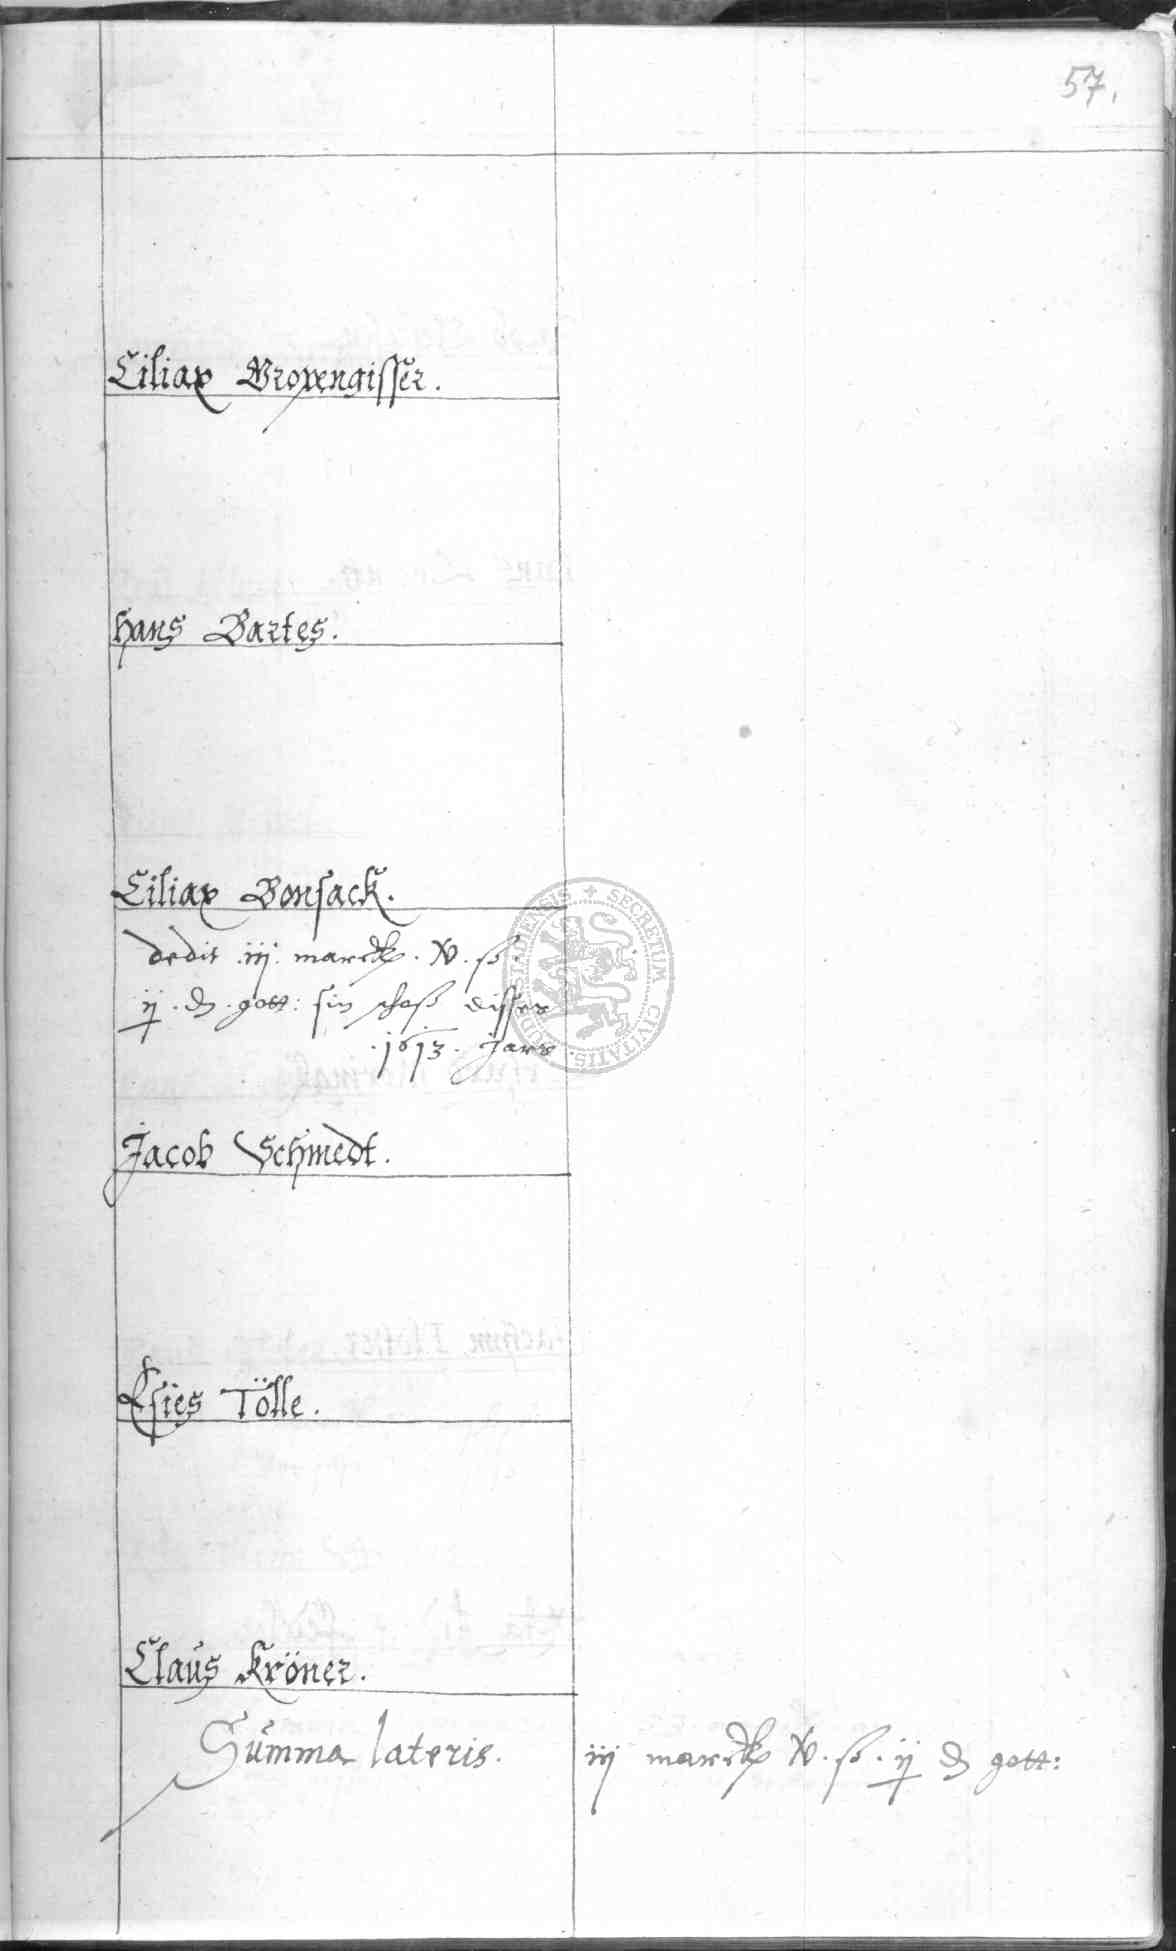 57.
Ciliax Gropengisser.
Hans Bartes.
Ciliax Bonsack.
dedit .iij. marck. XV. ß.
ij . ₰ . gott: sin schoß disses
.1613. Jars.
Jacob Schmedt.
Tölle.
Claus Kröner.
Summa lateris.
iij marck XV. ß. ij ₰ gott:
SECRETUM CIVITATIS DUDERSTADENSIS